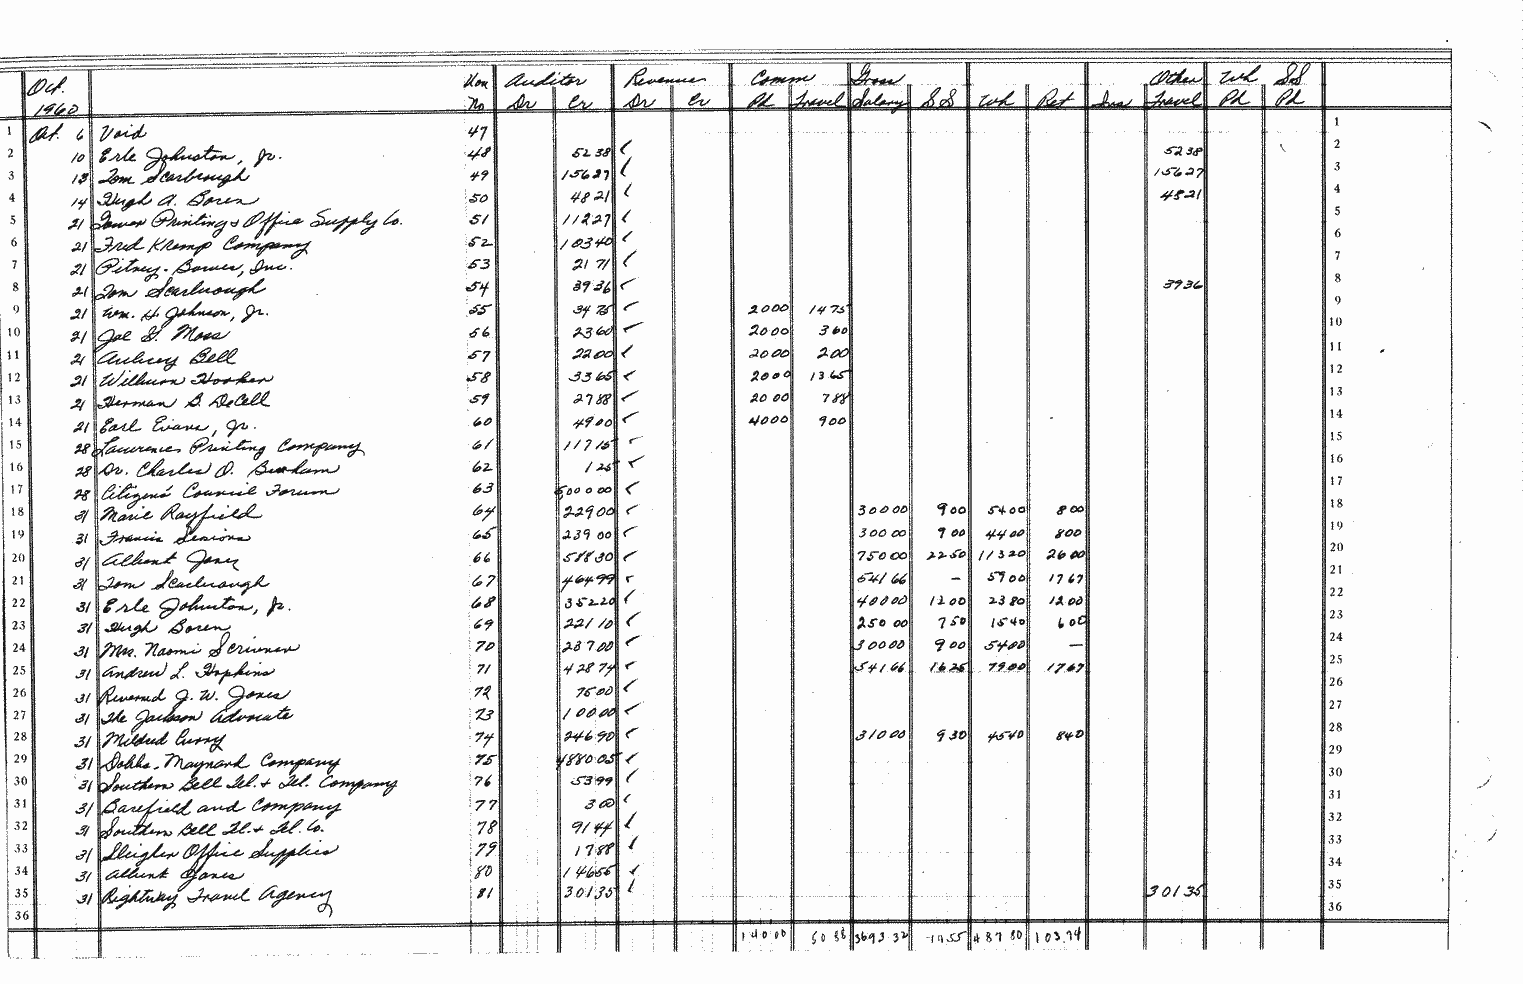 Oct. 1960 Von No Auditor Dr Cr Revenue Dr Cr Comm Pd Travel Gross Salary SS Wh Ret Ins Other Travel Wh Pd SS Pd
1 Oct. 6 Void 47 1
2 10 Erle Johnston, Jr. 48 52 38 ✓ 52 38 2
3 13 Tom Scarbrough 49 156 27 ✓ 156 27 3
4 14 Hugh A. Boren 50 48 21 ✓ 48 21 4
5 21 Tower Printing & Office Supply Co. 51 112 27 ✓ 5
6 21 Fred Kramp Company 52 103 40 ✓ 6
7 21 Pitney-Bowes, Inc. 53 21 71 ✓ 7
8 21 Tom Scarbrough 54 39 36 ✓ 39 36 8
9 21 Wm. H. Johnson, Jr. 55 34 75 ✓ 20 00 14 75 9
10 21 Joe G. Moss 56 23 60 ✓ 20 00 3 60 10
11 21 Aubrey Bell 57 22 00 ✓ 20 00 2 00 11
12 21 Wilburn Hooker 58 33 65 ✓ 20 00 13 65 12
13 21 Herman B. DeCell 59 27 88 ✓ 20 00 7 88 13
14 21 Earl Evans, Jr. 60 49 00 ✓ 40 00 9 00 14
15 28 Lawrence Printing Company 61 117 15 ✓ 15
16 28 Dr. Charles O. 62 1 25 ✓ 16
17 28 Citizens' Council Forum 63 5000 00 ✓ 17
18 31 Marie Rayfield 64 229 00 ✓ 300 00 9 00 54 00 8 00 18
19 31 Francis 65 239 00 ✓ 300 00 9 00 44 00 8 00 19
20 31 Albert Jones 66 588 30 ✓ 750 00 22 50 113 20 26 00 20
21 31 Tom Scarbrough 67 464 99 ✓ 541 66 — 59 00 17 67 21
22 31 Erle Johnston, Jr. 68 352 20 ✓ 400 00 12 00 23 80 12 00 22
23 31 Hugh Boren 69 221 10 ✓ 250 00 7 50 15 40 6 00 23
24 31 Mrs. Naomi Scrivner 70 237 00 ✓ 300 00 9 00 54 00 — 24
25 31 Andrew L. Hopkins 71 428 74 ✓ 541 66 16 25 79 00 17 67 25
26 31 Reverend J. W. Jones 72 75 00 ✓ 26
27 31 The Jackson Advocate 73 100 00 ✓ 27
28 31 Mildred Curry 74 246 90 ✓ 310 00 9 30 45 40 8 40 28
29 31 Dobbs-Maynard Company 75 4880 05 ✓ 29
30 31 Southern Bell Tel. & Tel. Company 76 53 99 ✓ 30
31 31 Barefield and Company 77 3 00 ✓ 31
32 31 Southern Bell Tel. & Tel. Co. 78 91 44 ✓ 32
33 31 Office Supplies 79 17 88 ✓ 33
34 31 Albert Jones 80 146 55 ✓ 34
35 31 Rightway Travel Agency 81 301 35 ✓ 301 35 35
36 36
140 00 50 88 3693 32 487 80 103 74